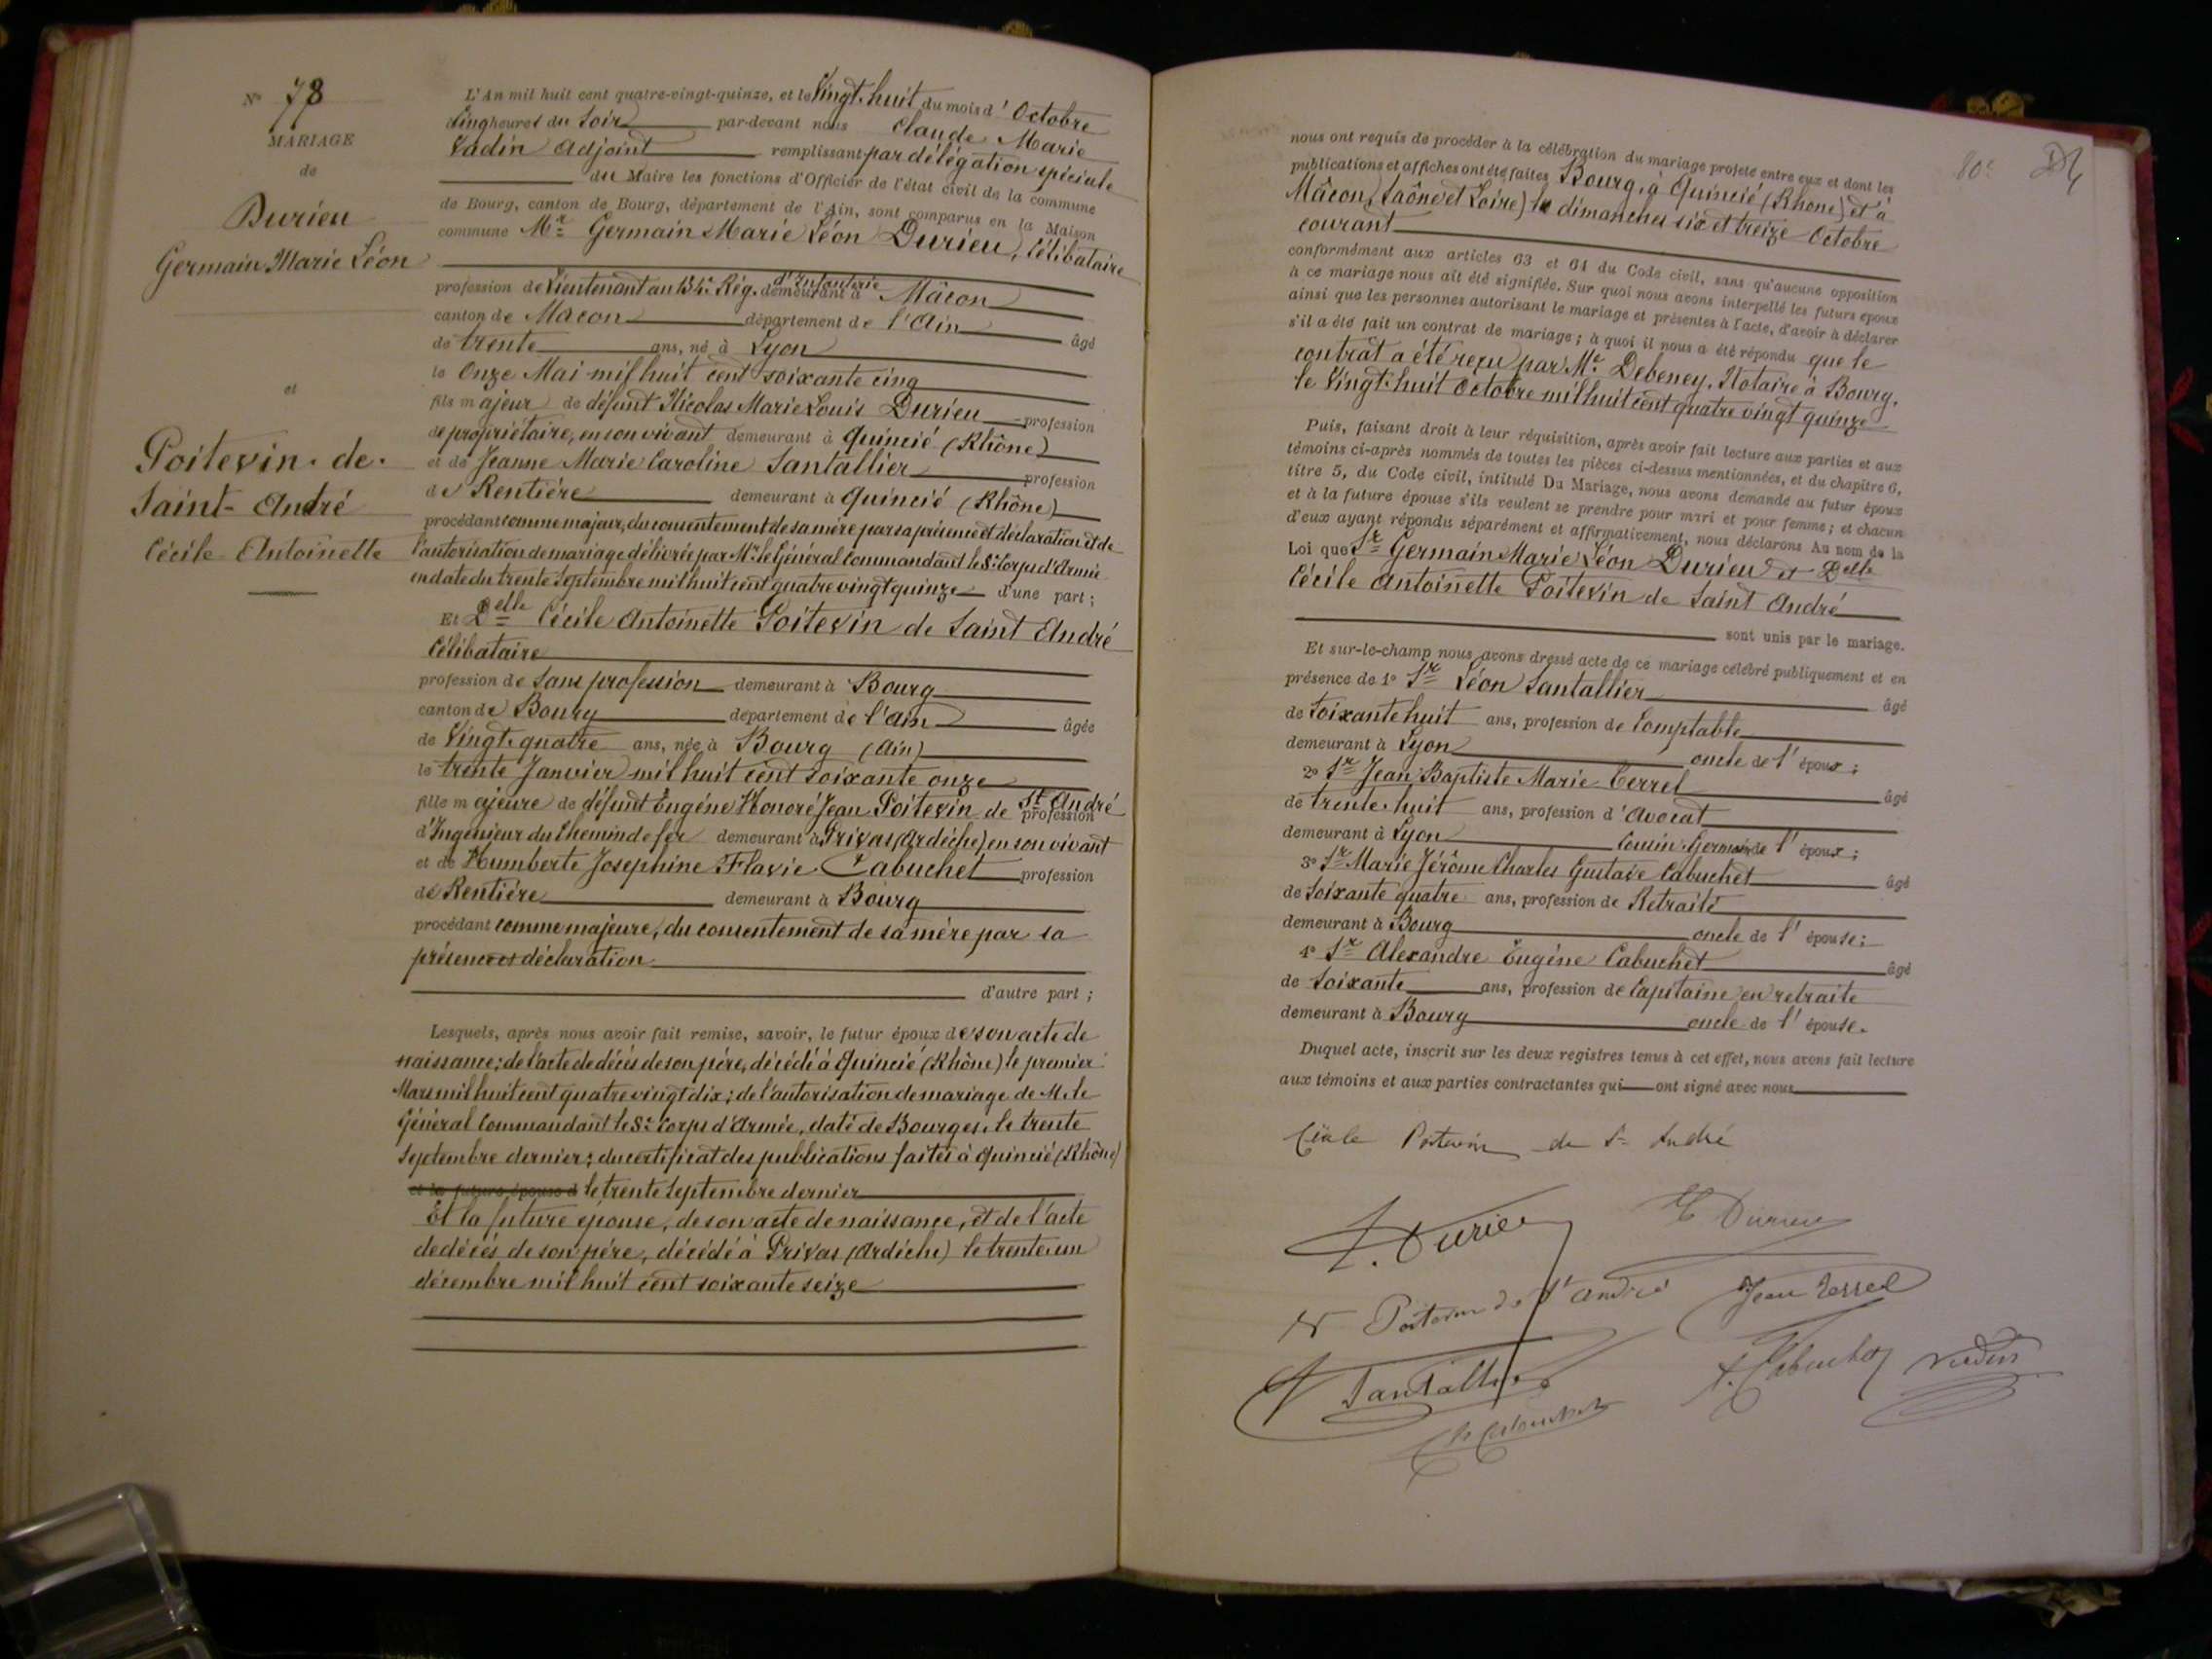 N° 78
MARIAGE
de
Durieu
Germain Marie Léon
et
Poitevin de
Saint-André
Cécile Antoinette
L'An mil huit cent quatre-vingt-quinze, et le Vingt-huit du mois d'Octobre
Cinq heures du Soir par-devant nous Claude Marie
Vadin Adjoint remplissant par délégation spéciale
du Maire les fonctions d'Officier de l'état civil de la commune
de Bourg, canton de Bourg, département de l'Ain, sont comparus en la Maison
commune Mr Germain Marie Léon Durieu, Célibataire
profession de Lieutenant au 134e Rég. d'Infanterie demeurant à Mâcon
canton de Macon département de l'Ain âgé
de trente ans, né à Lyon
le Onze Mai mil huit cent soixante cinq
fils majeur de défunt Nicolas Marie Louis Durieu profession
de propriétaire, en son vivant demeurant à Quincié (Rhône)
et de Jeanne Marie Caroline Santallier profession
de Rentière demeurant à Quincié (Rhône)
procédant comme majeur, du consentement de sa mère par sa présence et déclaration et de
l'autorisation de mariage délivrée par Mr le Général Commandant le 8e Corps d'Armée
en date du trente Septembre mil huit cent quatre vingt quinze d'une part;
Et Delle Cécile Antoinette Poitevin de Saint André
Célibataire
profession de Sans profession demeurant à Bourg
canton de Bourg département de l'Ain âgée
de Vingt-quatre ans, née à Bourg (Ain)
le trente Janvier mil huit cent soixante onze
fille majeure de défunt Eugéne Honoré Jean Poitevin de St André profession
d'Ingénieur du Chemin de fer demeurant à Privas (Ardèche) en son vivant
et de Humberte Josephine Flavie Cabuchet profession
de Rentière demeurant à Bourg
procédant comme majeure, du consentement de sa mère par sa
présence et déclaration
d'autre part;
Lesquels, après nous avoir fait remise, savoir, le futur époux de son acte de
naissance; de l'acte de décés de son pére, décédé à Quincié (Rhône) le premier
Mars mil huit cent quatre vingt dix; de l'autorisation de mariage de M. le
Général Commandant le 8e Corps d'Armée, daté de Bourges, le trente
Septembre dernier; du certificat des publications faites à Quincié (Rhône)
et la future épouse d le trente Septembre dernier
Et la future épouse, de son acte de naissance, et de l'acte
de décés de son pére, décédé à Privas (Ardéche) le trente un
décembre mil huit cent soixante seize
80e
nous ont requis de procéder à la célébration du mariage projeté entre eux et dont les
publications et affiches ont été faites Bourg, à Quincié (Rhône) et à
Mâcon, (Saône et Loire) le dimanches six et treize Octobre
courant
conformément aux articles 63 et 64 du Code civil, sans qu'aucune opposition
à ce mariage nous ait été signifiée. Sur quoi nous avons interpellé les futurs époux
ainsi que les personnes autorisant le mariage et présentes à l'acte, d'avoir à déclarer
s'il a été fait un contrat de mariage; à quoi il nous a été répondu que le
contrat a été reçu par Me Debeney, Notaire à Bourg,
le Vingt-huit Octobre mil huit cent quatre vingt quinze
Puis, faisant droit à leur réquisition, après avoir fait lecture aux parties et aux
témoins ci-après nommés de toutes les pièces ci-dessus mentionnées, et du chapitre 6,
titre 5, du Code civil, intitulé Du Mariage, nous avons demandé au futur époux
et à la future épouse s'ils veulent se prendre pour mari et pour femme; et chacun
d'eux ayant répondu séparément et affirmativement, nous déclarons Au nom de la
Loi que Sr Germain Marie Léon Durieu et Delle
Cécile Antoinette Poitevin de Saint André
sont unis par le mariage.
Et sur-le-champ nous avons dressé acte de ce mariage célébré publiquement et en
présence de 1° Sr Léon Santallier âgé
de Soixante huit ans, profession de Comptable
demeurant à Lyon oncle de l'époux;
2° Sr Jean Baptiste Marie Terrel âgé
de trente-huit ans, profession d'Avocat
demeurant à Lyon Cousin-Germain de l'époux;
3° Sr Marie Jérôme Charles Gustave Cabuchet âgé
de Soixante quatre ans, profession de Retraité
demeurant à Bourg oncle de l'épouse;
4° Sr Alexandre Eugéne Cabuchet âgé
de Soixante ans, profession de Capitaine en retraite
demeurant à Bourg oncle de l'épouse.
Duquel acte, inscrit sur les deux registres tenus à cet effet, nous avons fait lecture
aux témoins et aux parties contractantes qui ont signé avec nous
Cécile Poitevin de St André
L. Durieu Durieu
Poitevin de St André Jean Terrel
Santallier Cabuchet Vadin
Ch Cabuchet